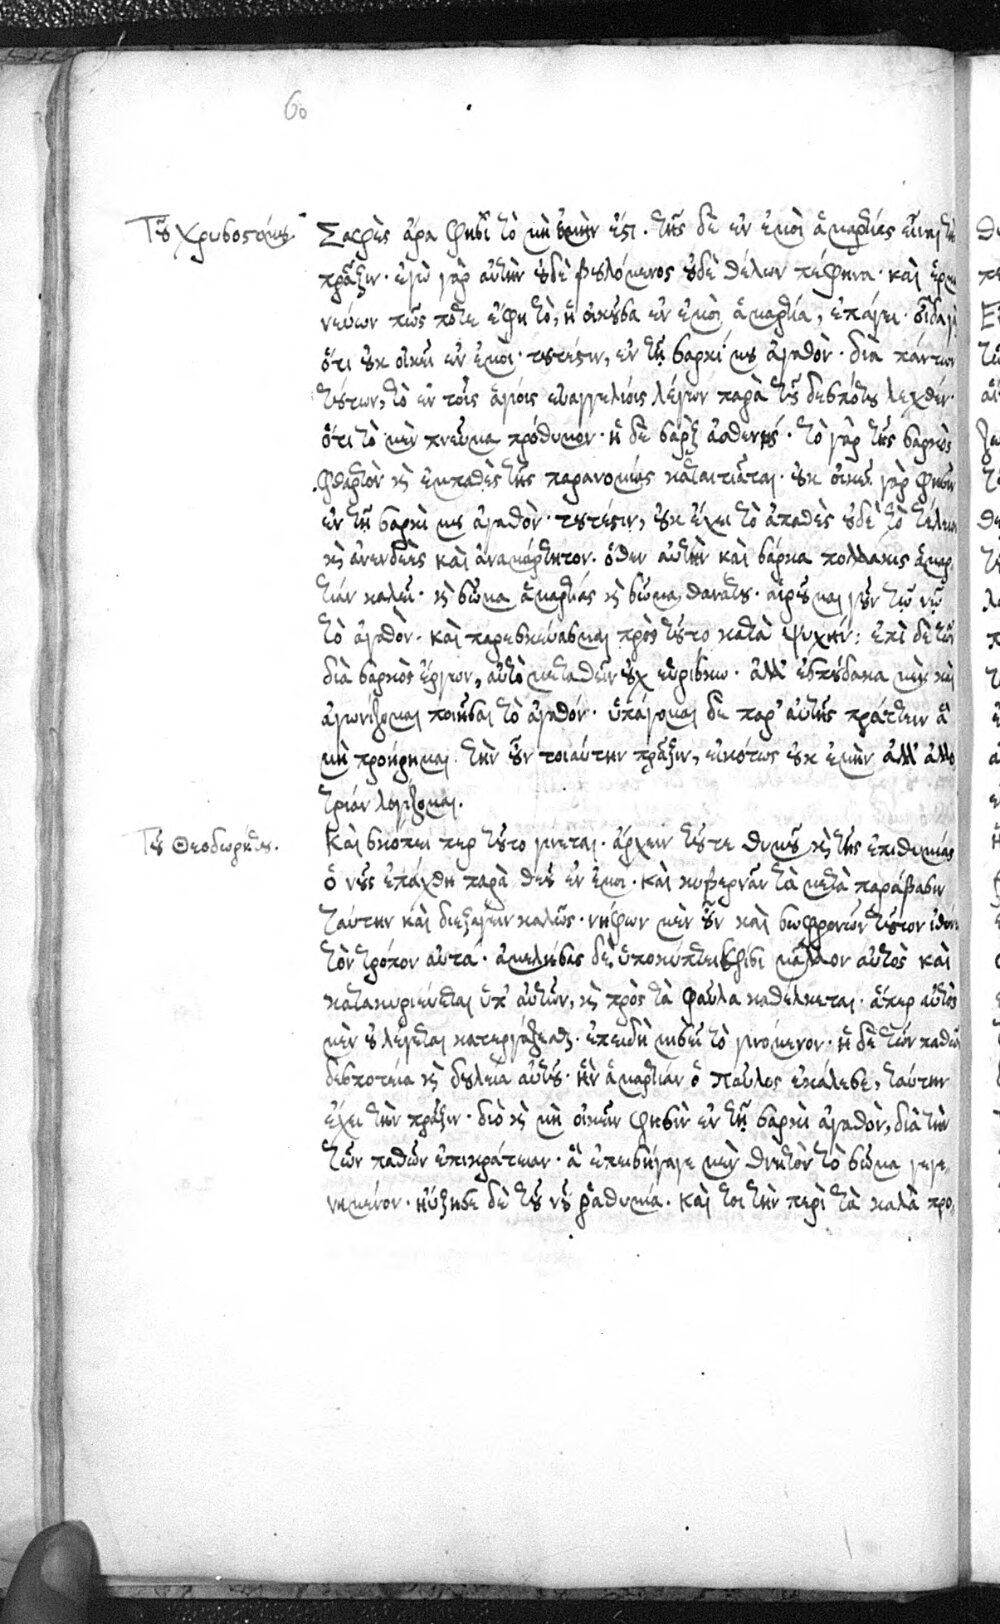 60
Τοῦ Χρυσοστόμου Σαφὲς ἄρα φησὶ τὸ μὴ ἐμὴν ἐστι. τῆς δὲ ἐν ἐμοὶ ἁμαρτίας εἶναι τὴν
πρᾶξιν. ἐγὼ γὰρ αὐτὴν οὐδὲ βουλόμενος οὐδὲ θέλων πέφηνα. καὶ ἑρμη
νεύων πῶς ποτε ἔφη τὸ, ἡ οἰκοῦσα ἐν ἐμοὶ ἁμαρτία, ἐπάγει. οἶδα γὰρ
ὅτι οὐκ οἰκεῖ ἐν ἐμοὶ. τουτέστιν, ἐν τῇ σαρκί μου ἀγαθὸν. διὰ πάντων
τούτων, τὸ ἐν τοῖς ἁγίοις εὐαγγελίοις λέγων παρὰ τοῦ δεσπότου λεχθέν.
ὅτι τὸ μὲν πνεῦμα πρόθυμον. ἡ δὲ σὰρξ ἀσθενής. τὸ γὰρ τῆς σαρκὸς
φθαρτὸν καὶ ἐμπαθὲς τῆς παρανομίας καταιτιᾶται. οὐκ οἰκεῖ γὰρ φησὶν
ἐν τῇ σαρκὶ μου ἀγαθὸν. τουτέστιν, οὐκ ἔχει τὸ ἀπαθὲς οὐδὲ τὸ τέλειον
καὶ ἀνενδεὲς καὶ ἀναμάρτητον. ὅθεν αὐτὴν καὶ σάρκα πολλάκις ἁμαρ
τίαν καλεῖ. καὶ σῶμα ἁμαρτίας καὶ σῶμα θανάτου. αἱροῦμαι γοῦν τῷ νῷ
τὸ ἀγαθὸν. καὶ παρεσκεύασμαι πρὸς τοῦτο κατὰ ψυχήν: ἐπὶ δὲ τῶν
διὰ σαρκὸς ἔργων, αὐτὸ μεταθεῖν οὐχ εὑρίσκω. ἀλλ' ἐσπούδακα μὲν καὶ
ἀγωνίζομαι ποιῆσαι τὸ ἀγαθόν. ὑπάγομαι δὲ παρ' αὐτῆς πράττειν ἃ
μὴ προῄρημαι. τὴν οὖν τοιαύτην πρᾶξιν, εἰκότως οὐκ ἐμὴν ἀλλ' ἀλλο
τρίαν λογίζομαι.
Τοῦ Θεοδωρήτου. Καὶ σκόπει περ τοῦτο γίνεται. ἄρχειν τοῦτε θυμοῦ καὶ τῆς ἐπιθυμίας
ὁ νοῦς ἐτάχθη παρὰ θεοῦ ἐν ἐμοι. καὶ κυβερνᾶν τὰ μετὰ παράβασιν
ταύτην καὶ διεξάγειν καλῶς. νήφων μὲν οὖν καὶ σωφρονῶν τοῦτον ἰθύνει
τὸν τρόπον αὐτά. ἀμελήσας δὲ, ὑποκύπτει σφίσι μᾶλλον αὐτὸς καὶ
κατακυριεύεται ὑπ' αὐτῶν, καὶ πρὸς τὰ φαῦλα καθέλκεται. ἅπερ αὐτὸς
μὲν οὐ λέγεται κατεργάζεσθαι. ἐπειδὴ μισεῖ τὸ γινόμενον. ἡ δὲ τῶν παθῶν
δεσποτεία καὶ δουλεία αὐτοῦ. ἣν ἁμαρτίαν ὁ Παῦλος ἐκάλεσε, ταύτην
ἔχει τὴν πρᾶξιν. διὸ καὶ μὴ οἰκεῖν φησὶν ἐν τῇ σαρκὶ ἀγαθὸν, διὰ τὴν
τῶν παθῶν ἐπικράτειαν. ἃ ἐπεισήγαγε μὲν θνητὸν τὸ σῶμα γεγε
νημένον. ηὔξησε δὲ τοῦ νοῦ ῥαθυμία. καὶ τοι τὴν περὶ τὰ καλὰ προ